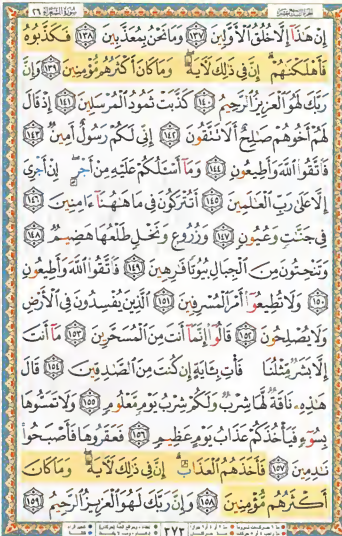 سورة الشعراء ٢٦
إِنْ هَٰذَآ إِلَّا خُلُقُ ٱلْأَوَّلِينَ ١٣٧ وَمَا نَحْنُ بِمُعَذَّبِينَ ١٣٨ فَكَذَّبُوهُ
فَأَهْلَكْنَٰهُمْ ۗ إِنَّ فِى ذَٰلِكَ لَـَٔايَةً ۖ وَمَا كَانَ أَكْثَرُهُم مُّؤْمِنِينَ ١٣٩ وَإِنَّ
رَبَّكَ لَهُوَ ٱلْعَزِيزُ ٱلرَّحِيمُ ١٤٠ كَذَّبَتْ ثَمُودُ ٱلْمُرْسَلِينَ ١٤١ إِذْ قَالَ
لَهُمْ أَخُوهُمْ صَٰلِحٌ أَلَا تَتَّقُونَ ١٤٢ إِنِّى لَكُمْ رَسُولٌ أَمِينٌ ١٤٣
فَٱتَّقُوا۟ ٱللَّهَ وَأَطِيعُونِ ١٤٤ وَمَآ أَسْـَٔلُكُمْ عَلَيْهِ مِنْ أَجْرٍ ۖ إِنْ أَجْرِىَ
إِلَّا عَلَىٰ رَبِّ ٱلْعَٰلَمِينَ ١٤٥ أَتُتْرَكُونَ فِى مَا هَٰهُنَآ ءَامِنِينَ ١٤٦
فِى جَنَّٰتٍ وَعُيُونٍ ١٤٧ وَزُرُوعٍ وَنَخْلٍ طَلْعُهَا هَضِيمٌ ١٤٨
وَتَنْحِتُونَ مِنَ ٱلْجِبَالِ بُيُوتًا فَٰرِهِينَ ١٤٩ فَٱتَّقُوا۟ ٱللَّهَ وَأَطِيعُونِ
١٥٠ وَلَا تُطِيعُوٓا۟ أَمْرَ ٱلْمُسْرِفِينَ ١٥١ ٱلَّذِينَ يُفْسِدُونَ فِى ٱلْأَرْضِ
وَلَا يُصْلِحُونَ ١٥٢ قَالُوٓا۟ إِنَّمَآ أَنتَ مِنَ ٱلْمُسَحَّرِينَ ١٥٣ مَآ أَنتَ
إِلَّا بَشَرٌ مِّثْلُنَا فَأْتِ بِـَٔايَةٍ إِن كُنتَ مِنَ ٱلصَّٰدِقِينَ ١٥٤ قَالَ
هَٰذِهِۦ نَاقَةٌ لَّهَا شِرْبٌ وَلَكُمْ شِرْبُ يَوْمٍ مَّعْلُومٍ ١٥٥ وَلَا تَمَسُّوهَا
بِسُوٓءٍ فَيَأْخُذَكُمْ عَذَابُ يَوْمٍ عَظِيمٍ ١٥٦ فَعَقَرُوهَا فَأَصْبَحُوا۟
نَٰدِمِينَ ١٥٧ فَأَخَذَهُمُ ٱلْعَذَابُ ۗ إِنَّ فِى ذَٰلِكَ لَـَٔايَةً ۖ وَمَا كَانَ
أَكْثَرُهُم مُّؤْمِنِينَ ١٥٨ وَإِنَّ رَبَّكَ لَهُوَ ٱلْعَزِيزُ ٱلرَّحِيمُ ١٥٩
٣٧٣